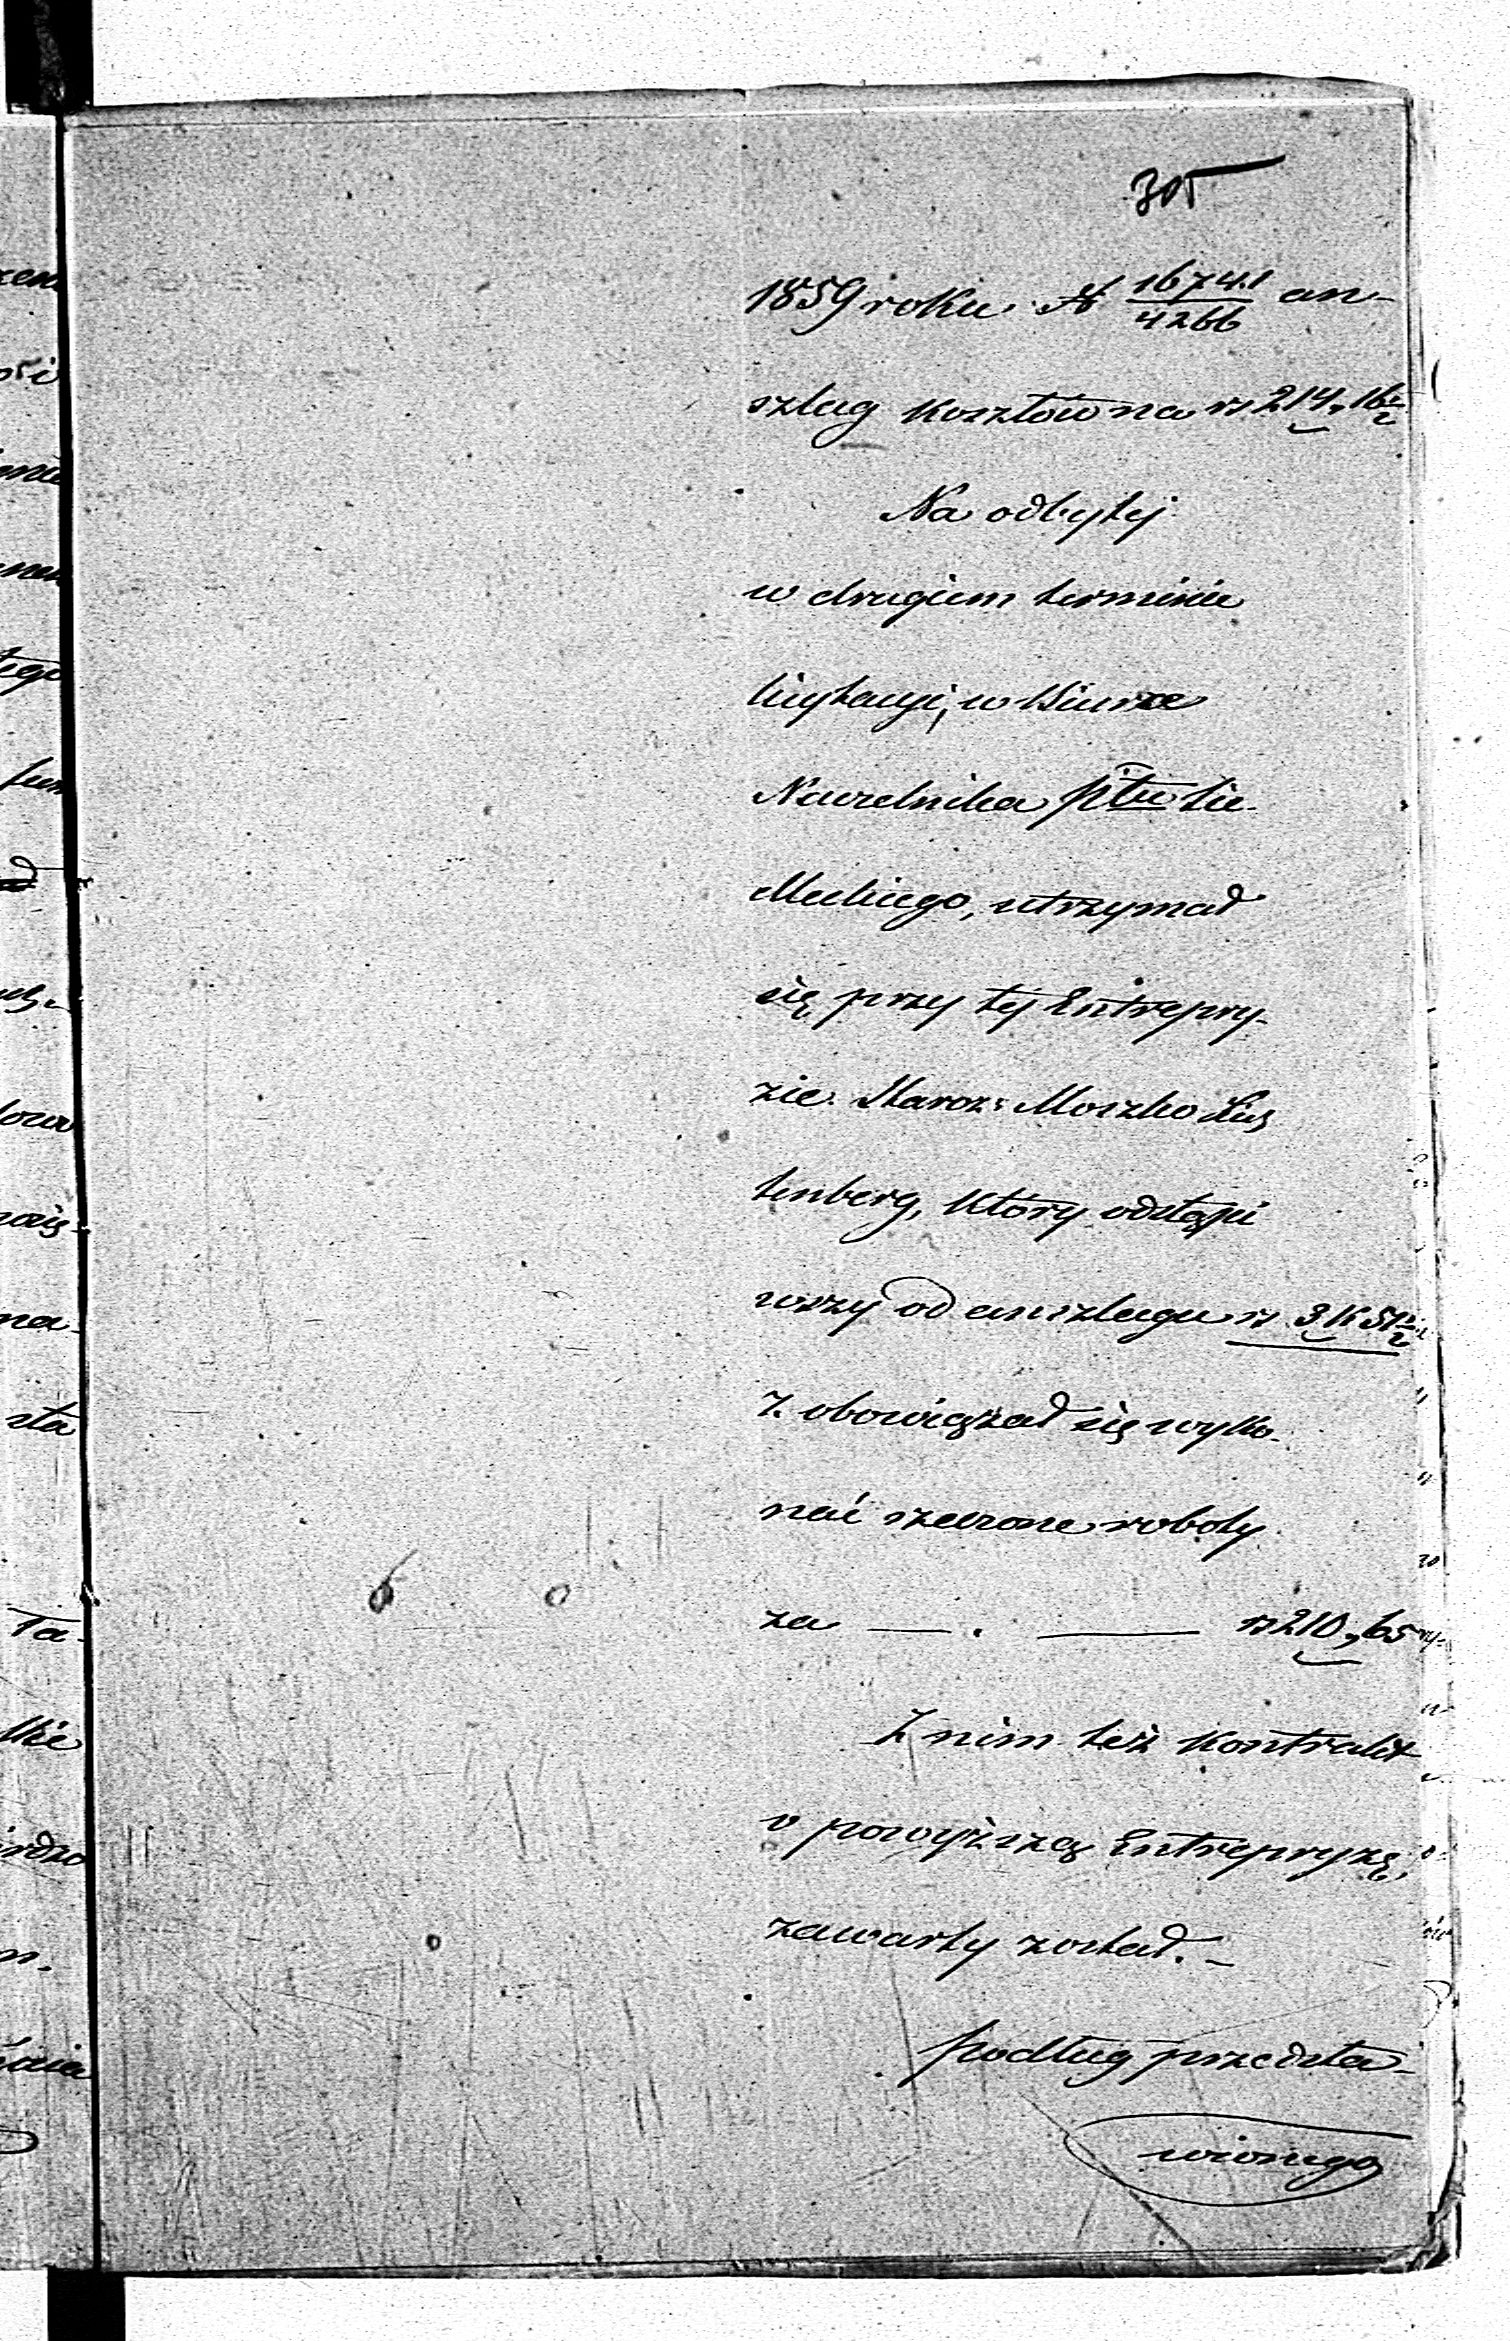 305
1859 roku № 16741/4266 an-
szlag kosztów na rs 214, 16½
Na odbytej
w drugiem terminie
licytacyi, w Biurze
Naczelnika Pttu Sie-
dleckiego, utrzymał
się przy tej Entrepry-
zie Staroz: Moszko
tenberg, który odstąpi
wszy od anszlagu rs 3 k 51½
zobowiązał się wyko-
nać rzeczone roboty
za — . — rs 210, 65
Z nim też kontrakt
o powyższą Entrepryzę,
zawarty został. -
Podług przedsta-
wionego